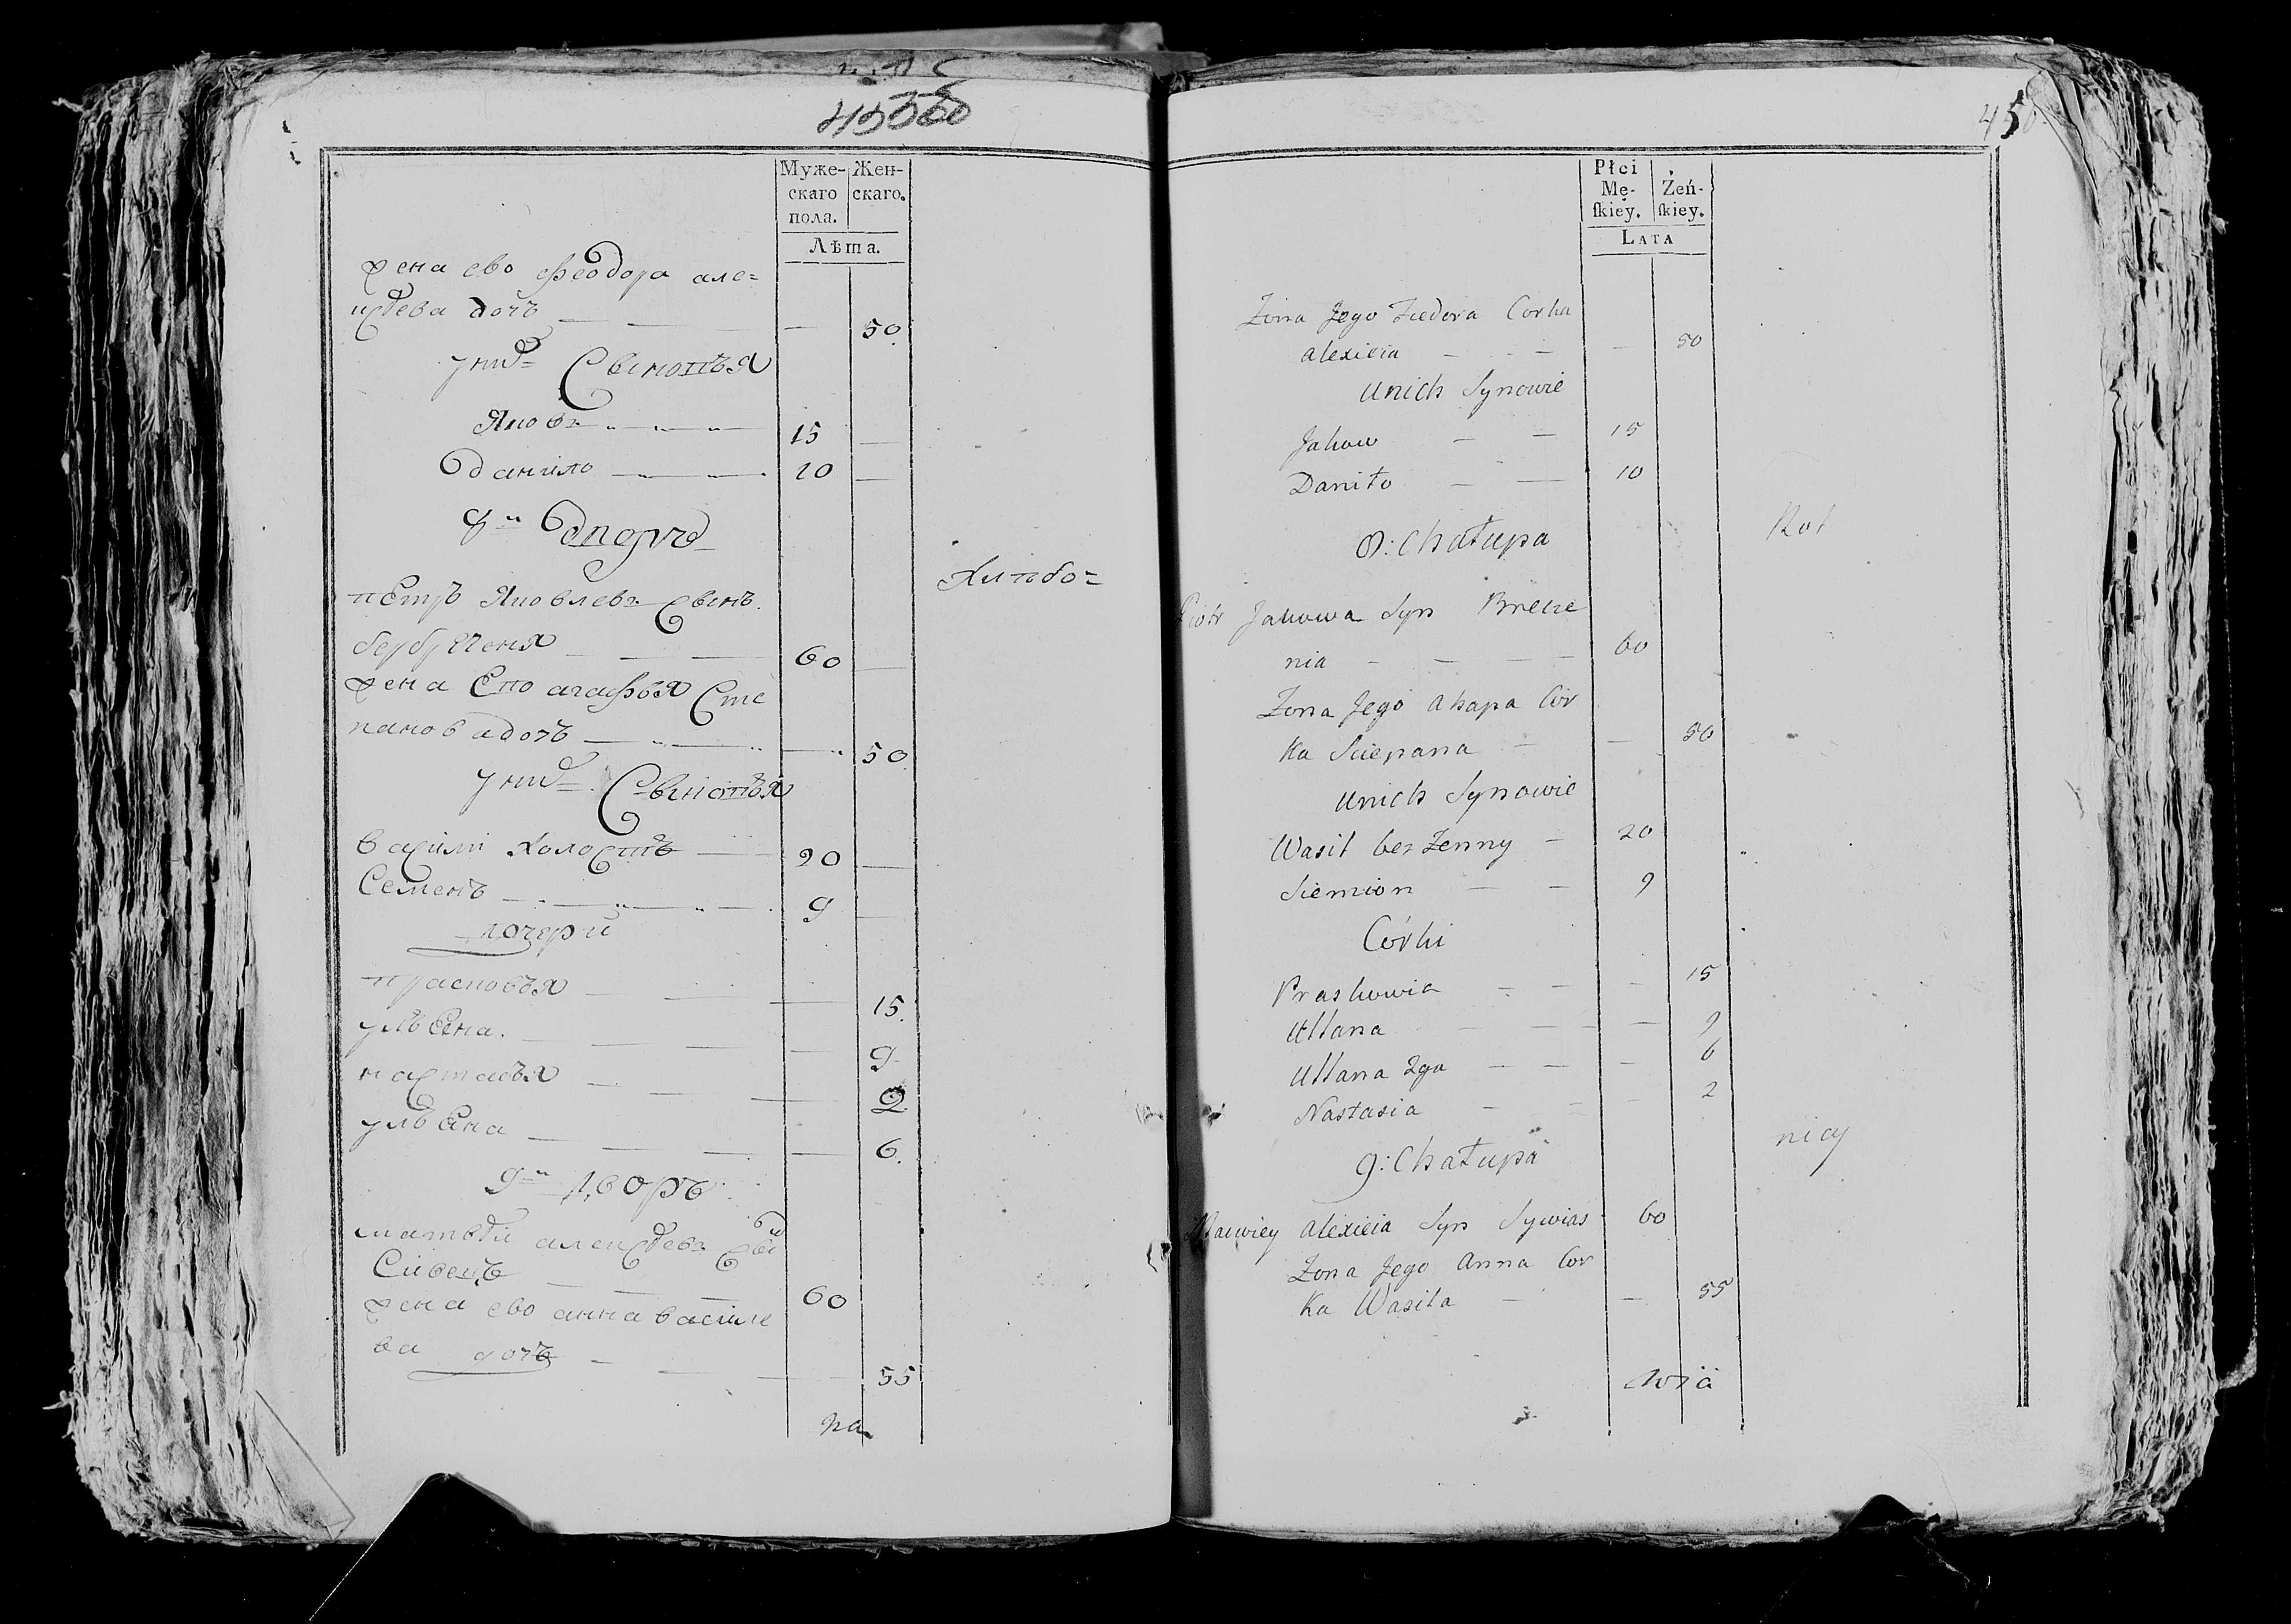 Муже-
скаго
пола.
Жен-
скаго.
Лѣта.
жена ево Феодора але=
ксѣева дочъ 50.
у них= Сыновъя
Яковъ 15
данило 10
8й дворъ
Хлѣбо=
пѣтръ Яковлевъ Сынъ
60
жена Ево агафья Сте
панова дочъ 50
у них= Сыновъя
василі холостъ 20
Семенъ 9
дочери
прасковъя 15.
ульяна. 9
настасъя 2
ульяна 6.
9й дворъ
матвѣй алексѣевъ Сы
Сивецъ 60
жена ево анна василе
ва дочъ 55
450
Płci
Mę-
ſkiey.
Żeń-
ſkiey.
LATA
Zona Jego Fiedora Corka
alexieia 50
Unich Synowie
Jakow 15
Daniło 10
8: Chałupa
Rol
Piotr Jakowa Syn
nia 60
Zona Jego Ahapa Cor
Ka Sciepana 50
Unich Synowie
Wasil bez Zenny 20
Siemion 9
Córki
Praskowia 15
Ullana 9
Ullana 2ga 6
Nastasia 2
nicy
9: Chałupa
Macwiey alexieia Syn Sywias 60
Zona Jego Anna Cor
Ka Wasila 55